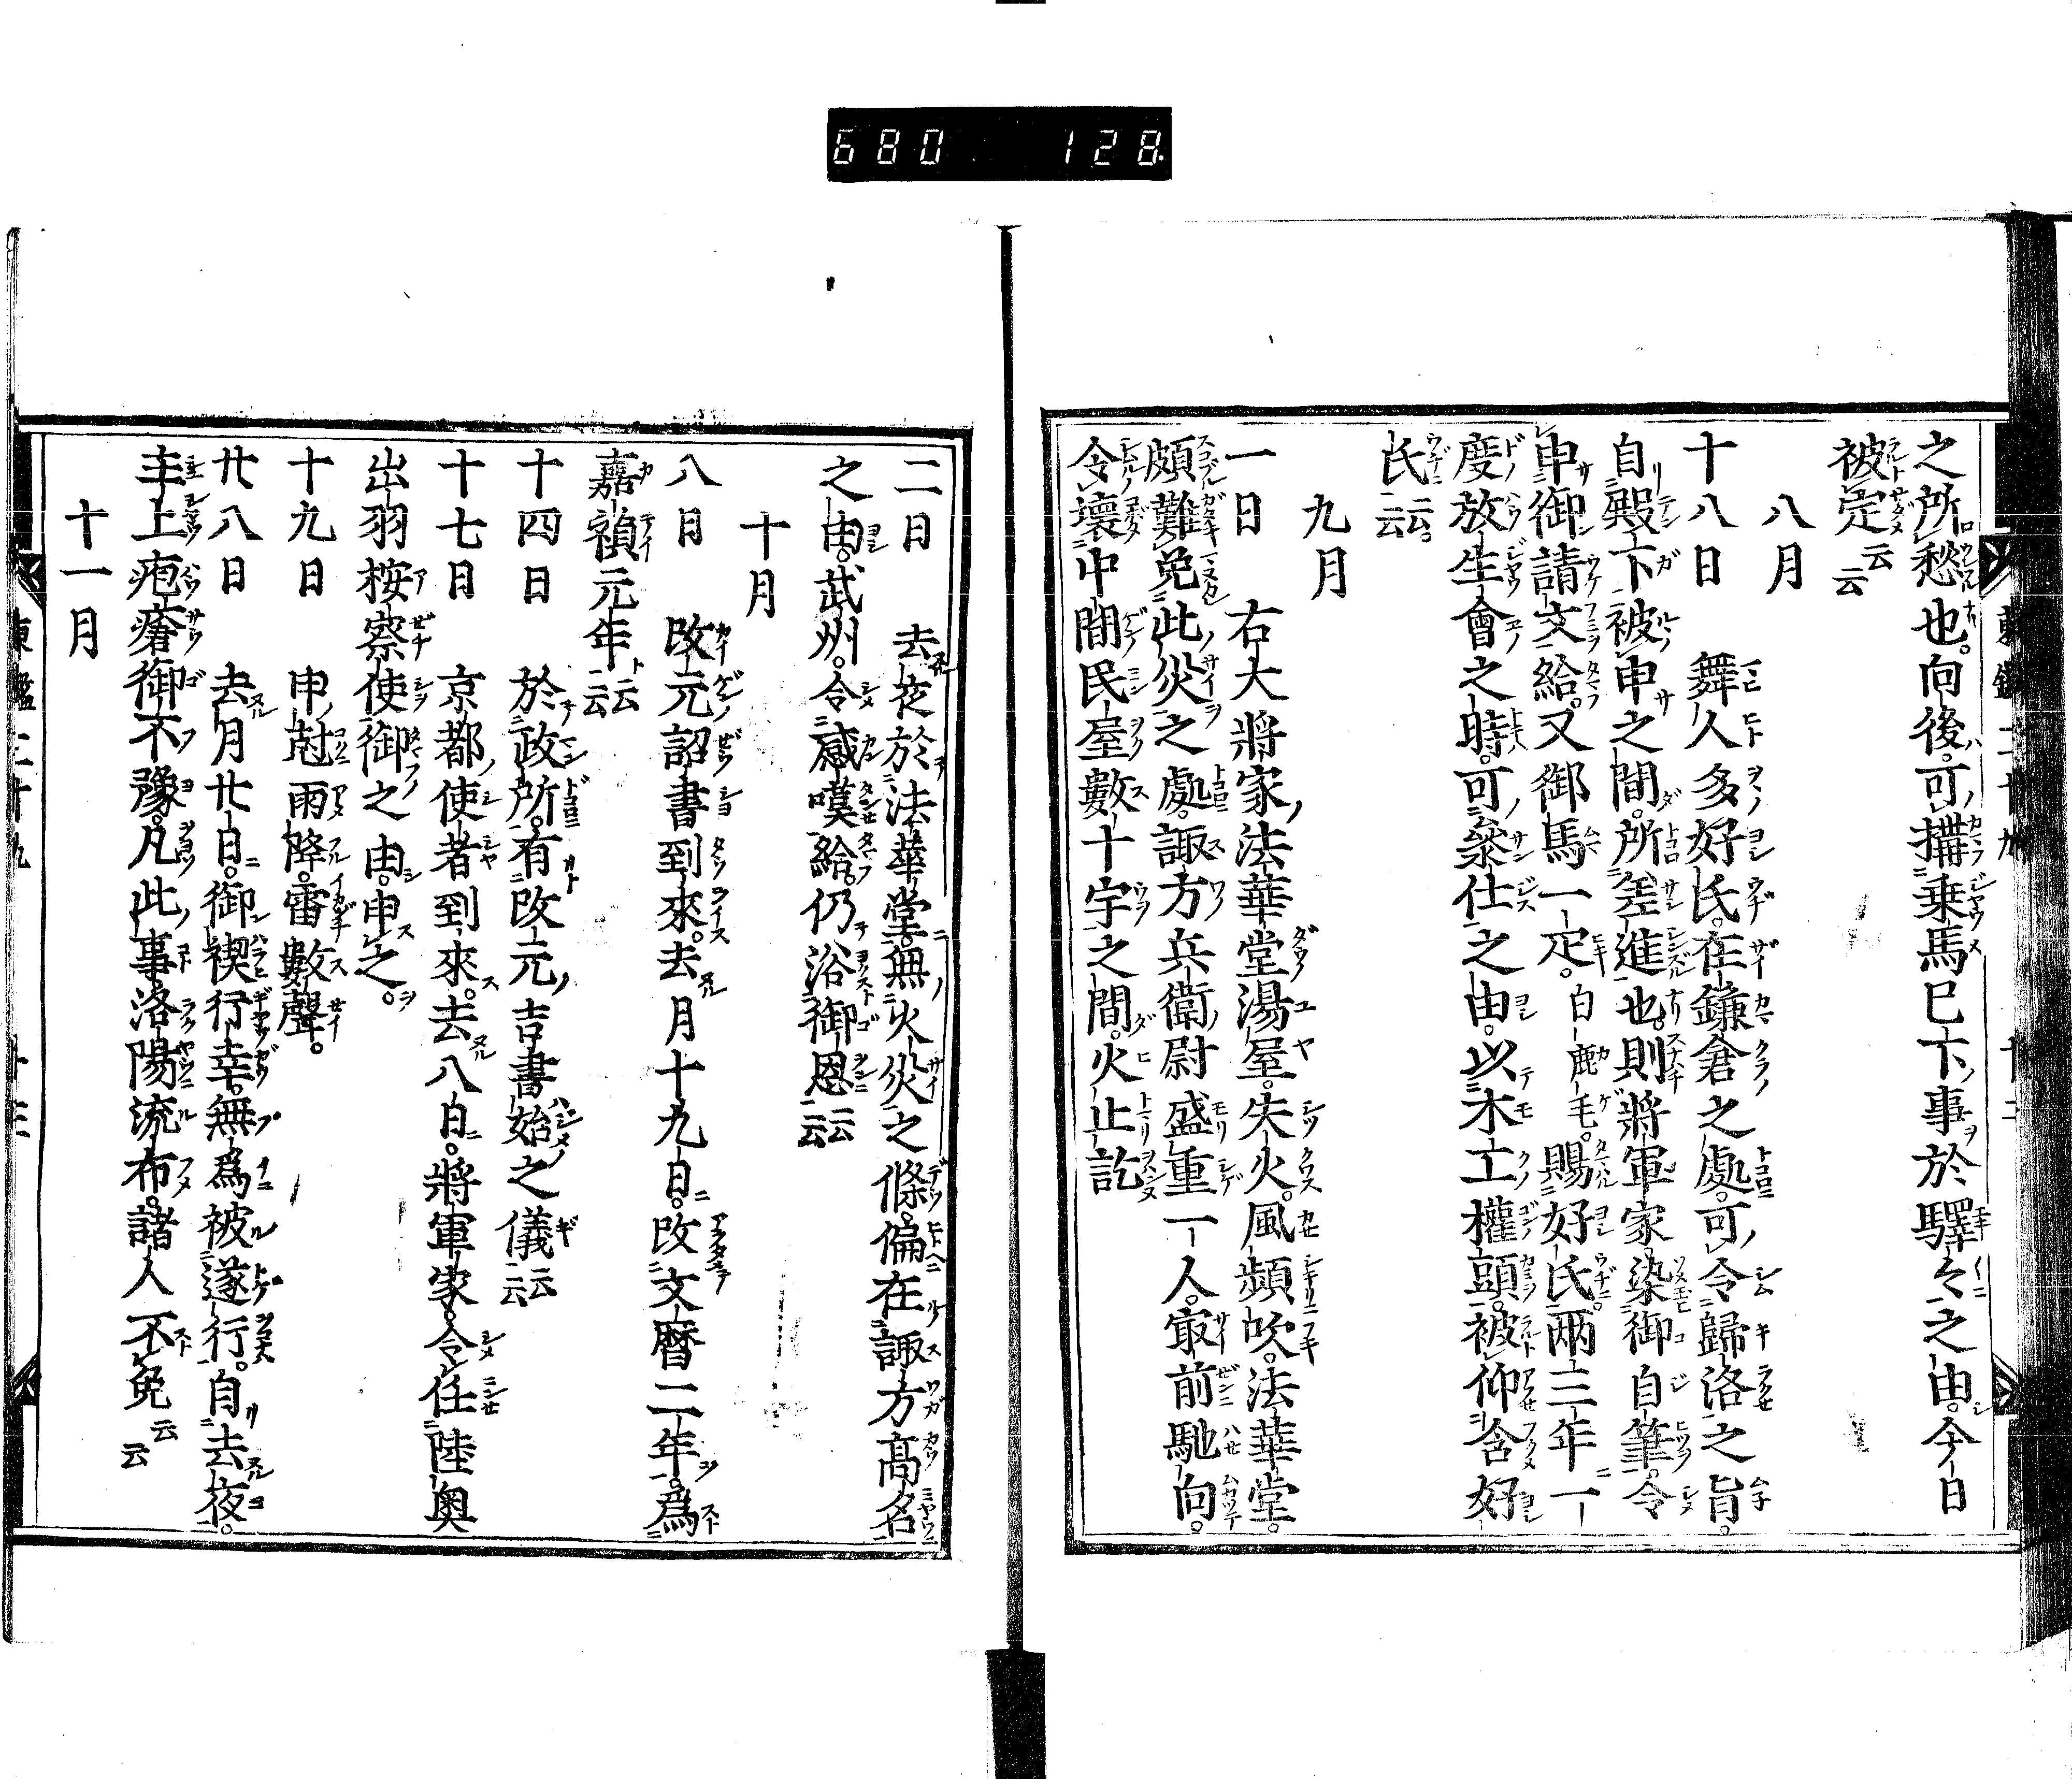 680 128
之所愁也。向後。可搆乗馬已下事於驛々之由。今日
被定云云
八月
十八日 舞人多好氏。在鎌倉之處。可令歸洛之旨。
自殿下被申之間。所差進也。則將軍家染御自筆。令
申御請文給。又御馬一疋。白鹿毛。賜好氏。兩三年一
度放生會之時。可參仕之由。以木工權頭。被仰含好
氏云云。
九月
一日 右大將家法華堂湯屋。失火。風頻吹。法華堂。
頗難免此災之處。諏方兵衛尉盛重一人。最前馳向。
令壞中間民屋數十宇之間。火止訖
二日 去夜於法華堂。無火災之條。偏在諏方髙名
之由。武州。令感嘆給。仍浴御恩云云
十月
八日 改元詔書到來。去月十九日。改文暦二年。爲
嘉禎元年云云
十四日 於政所。有改元吉書始之儀云云
十七日 京都使者到來。去八日。將軍家。令任陸奥
出羽按察使御之由。申之。
十九日 申尅雨降。雷數聲。
廿八日 去月廿日。御禊行幸。無爲被遂行。自去夜。
主上疱瘡御不豫。凡此事洛陽流布。諸人不免云云
十一月